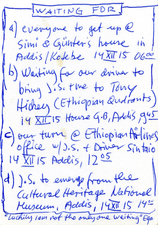 WAITING FOR
a) everyone to get up @
Simi & Günter's house in
Addis/Kolobe 14 XII 15 06⁰⁰
b) Waiting for our driver to
bring J.S. + me to Tony
Hickey (Ethiopian Quadrants)
14 XII 15 House G.B, Addis 9⁴⁵
c) our turn @ Ethiopian Airlines
office w/J.S. + Driver Sintaio
14 XII 15 Addis, 12⁰⁵
d) J.S. to emerge from the
Cultural Heritage National
Museum, Addis, 14 XII 15 14¹⁰
am not the only one waiting